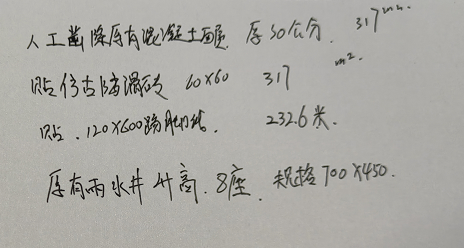 人工凿除原有混凝土面层 厚30公分. 317m².
贴仿古防滑砖 60×60 317m².
贴.120×600踢脚线. 232.6米.
原有雨水井升高.8座.规格700×450.